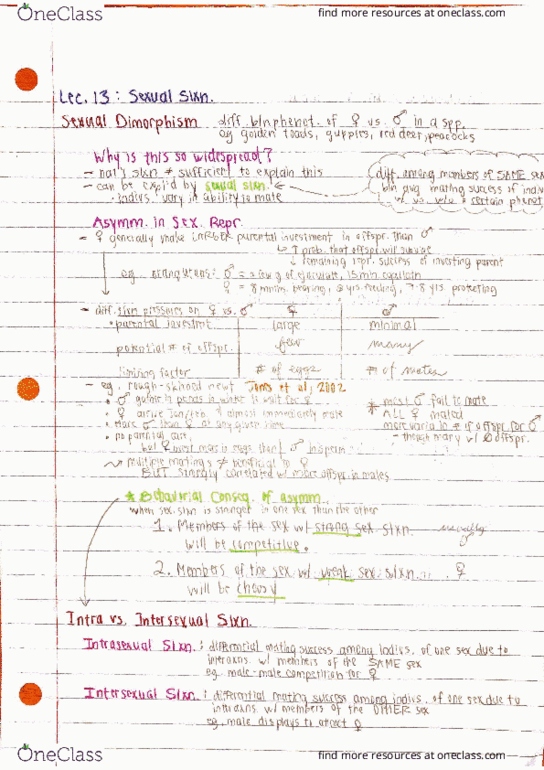 OneClass
find more resources at oneclass.com
Lec. 13 : Sexual Slxn.
Sexual Dimorphism diff. b/n phenot. of ♀ vs. ♂ in a spp.
eg golden toads, guppies, red deer, peacocks
Why is this so widespread?
- nat'l slxn ≠ sufficient to explain this
- can be expl'd by sexual slxn. ←
• indivs. vary in ability to mate
diff. among members of SAME sex
b/n avg mating success of indivs
w/ vs. w/o a certain phenot
Asymm. in Sex. Repr.
- ♀ generally make LARGER parental investment in offspr. than ♂
↳ ↑ prob. that offspr will survive
↓ remaining repr. success of investing parent
eg. orangutans: ♂ = a few g of ejaculate, 15 min copulatn
♀ = 8 mnths. , 3 yrs. feeding, 7-8 yrs protecting
- diff. slxn pressures on ♀ vs. ♂ ♀ ♂
• parental investmt. large minimal
potential # of offspr. few many
limiting factor # of eggs # of mates
- eg. rough-skinned newt Jones et al, 2002
• ♂ gather in ponds in winter to wait for ♀
• ♀ arrive & almost immediately mate
• more ♂ than ♀ at any given time
• no parental care,
but ♀ invest more in eggs than ♂ in sperm
↝ multiple matings ≠ beneficial to ♀
BUT strongly correlated w/ more offspr. in males
* most ♂ fail to mate
* ALL ♀ mated
more varia in # of offspr. for ♂
- though many w/ 0 offspr.
* Behavioral Conseq. of asymm.
when sex. slxn is stronger in one sex than the other
1. Members of the sex w/ strong sex. slxn. usually ♂
will be competitive.
2. Members of the sex w/ weak sex. slxn... ♀
will be choosy
Intra vs. Intersexual Slxn.
Intrasexual Slxn. : differential mating success among indivs. of one sex due to
intraxns. w/ members of the SAME sex
eg. male-male competition for ♀
Intersexual Slxn. : differential mating success among indivs. of one sex due to
intraxns w/ members of the OTHER sex
eg. male displays to attract ♀
OneClass
find more resources at oneclass.com